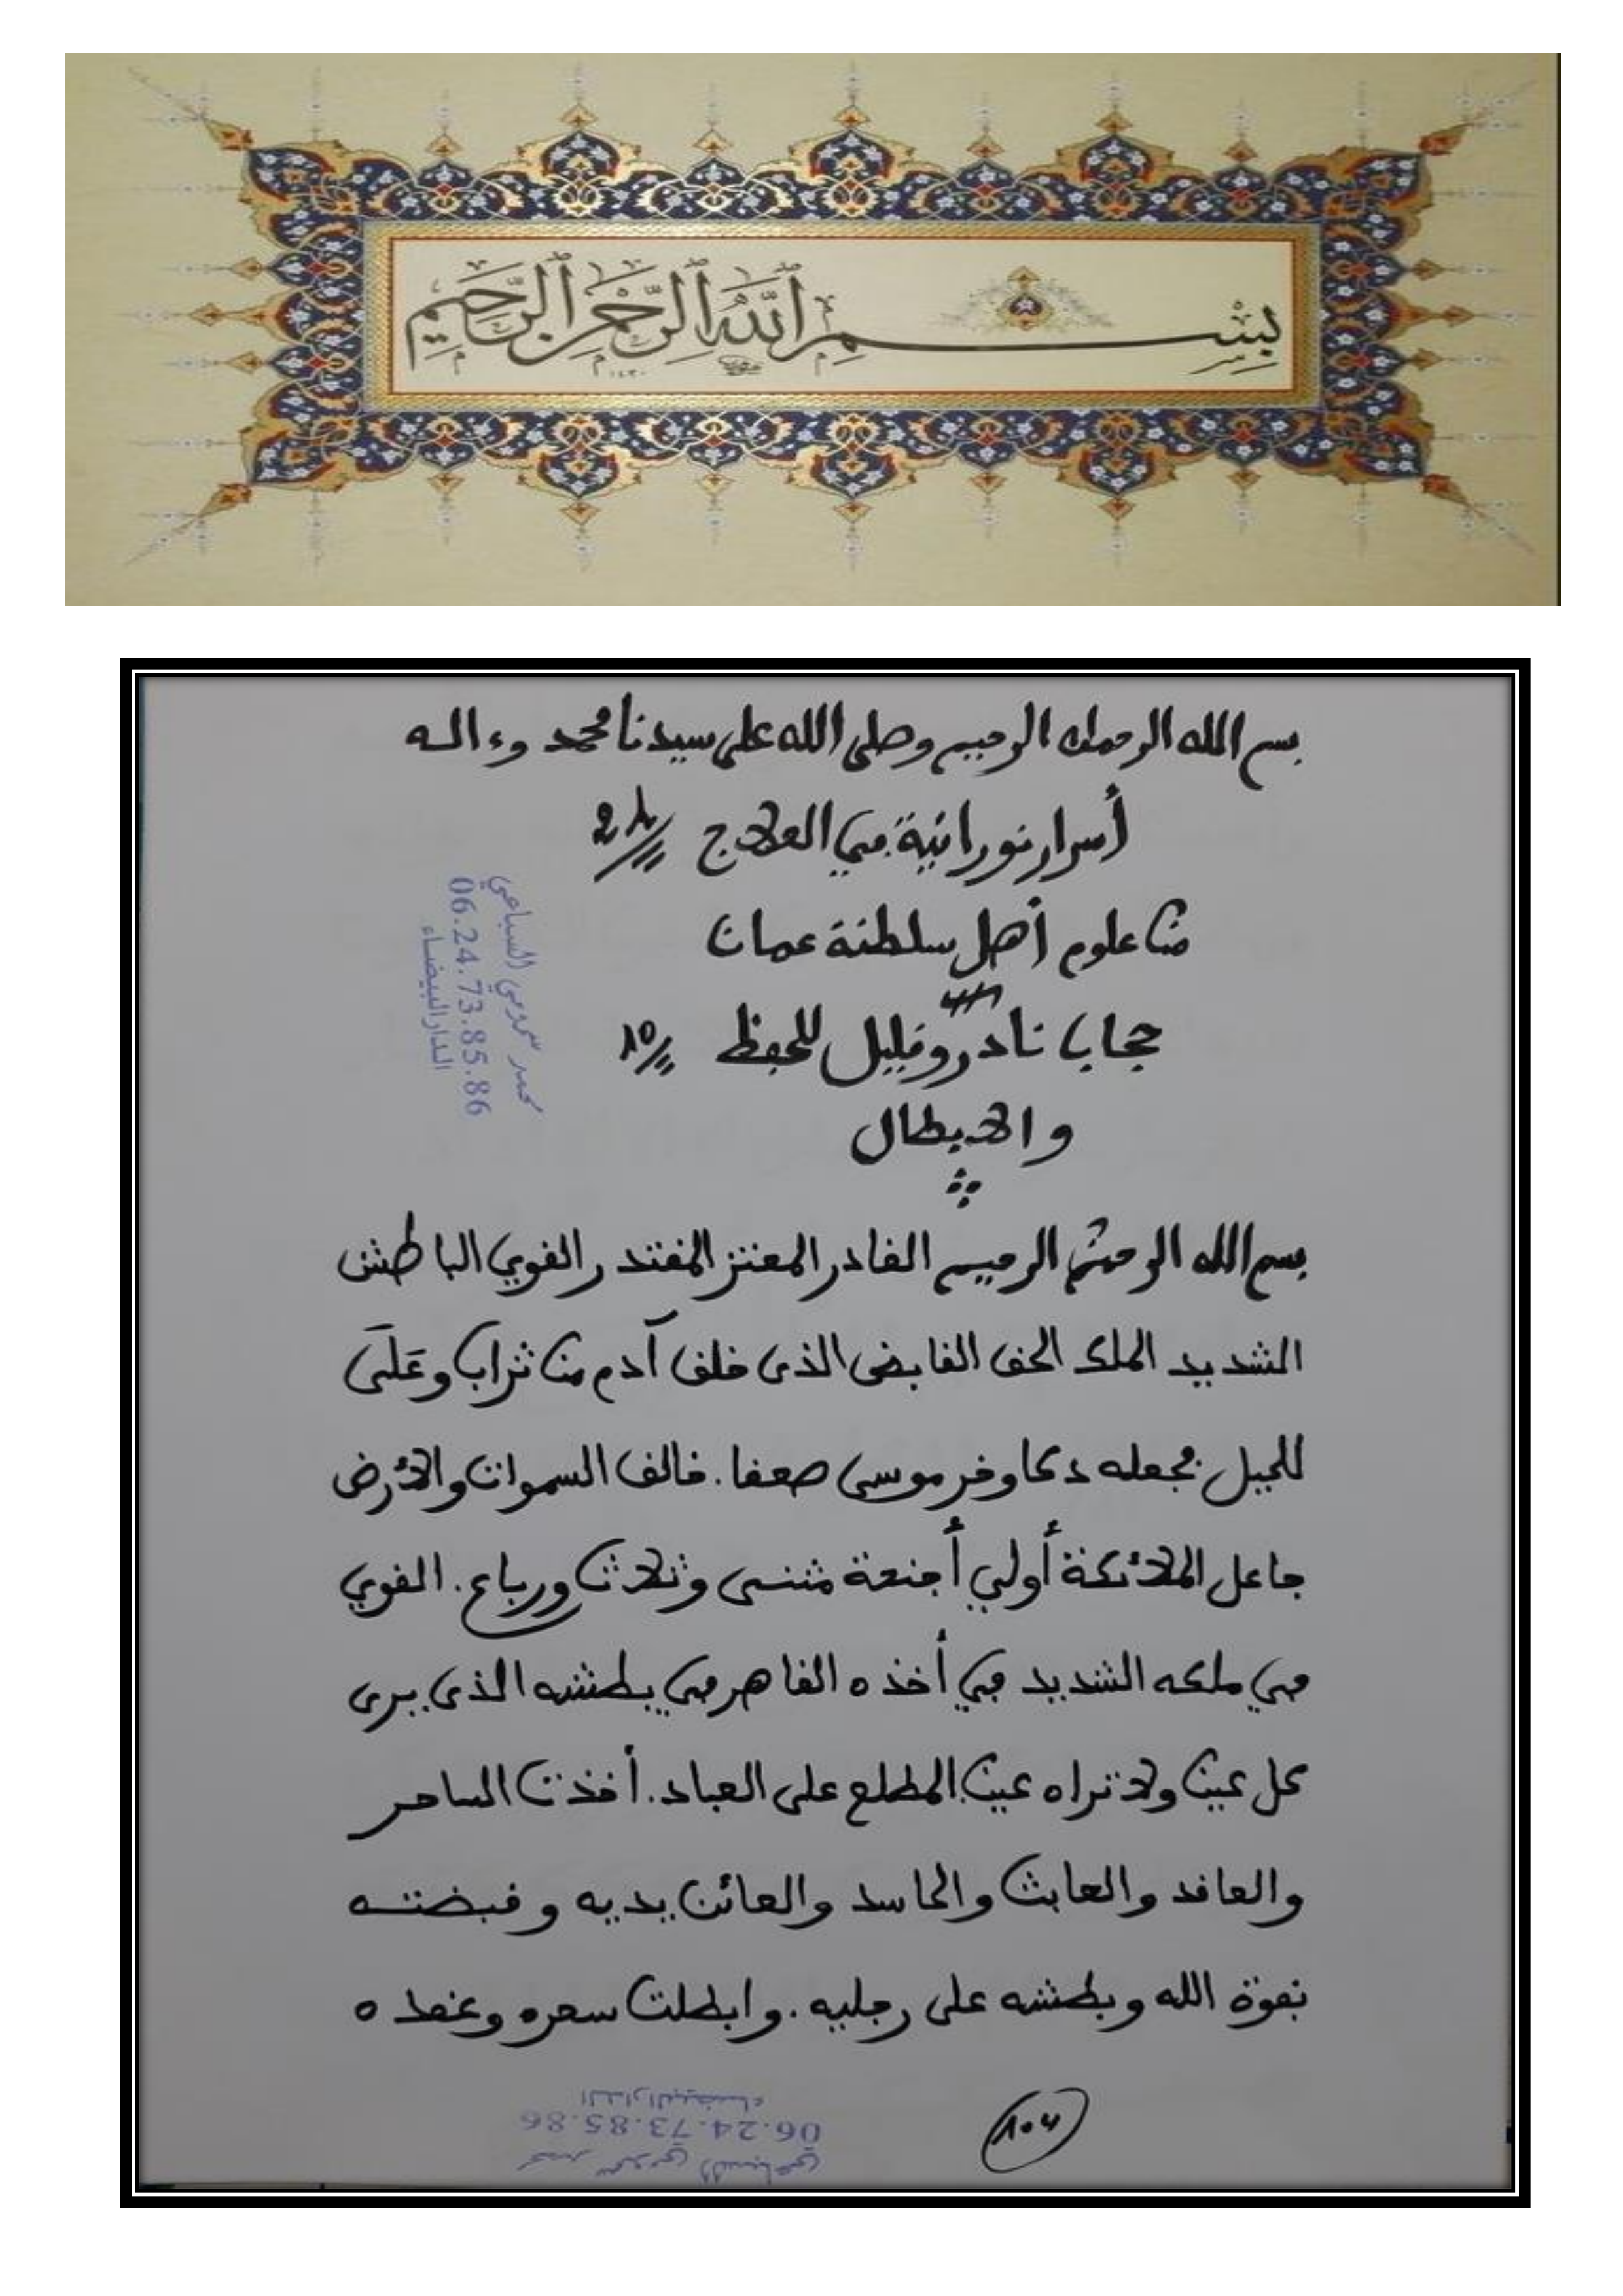 بسم الله الرحمن الرحيم
بسم الله الرحمان الرحيم وصلى الله على سيدنا محمد وءاله
أسرار نورانية في العلاج
من علوم أهل سلطنة عمان
حجاب نادر وقليل للحفظ
والابطال
محمد السباعي
06.24.73.85.86
الدار البيضاء
بسم الله الرحمن الرحيم القادر المعتز المقتدر القوي الباطش
الشديد الملك الحق القابض الذى خلق آدم من تراب وعلى
للجبل فجعله دكا وخر موسى صعقا. خالق السموات والأرض
جاعل الملائكة أولي أجنحة مثنى وثلاث ورباع. القوي
في ملكه الشديد في أخذه القاهر في بطشه الذى يرى
كل عين ولا تراه عين المطلع على العباد. أخذت الساحر
والعاقد والعابث والحاسد والعائن يديه وقبضته
بقوة الله وبطشه على رجليه. وابطلت سحره وعقده
104
محمد السباعي
06.24.73.85.86
الدار البيضاء